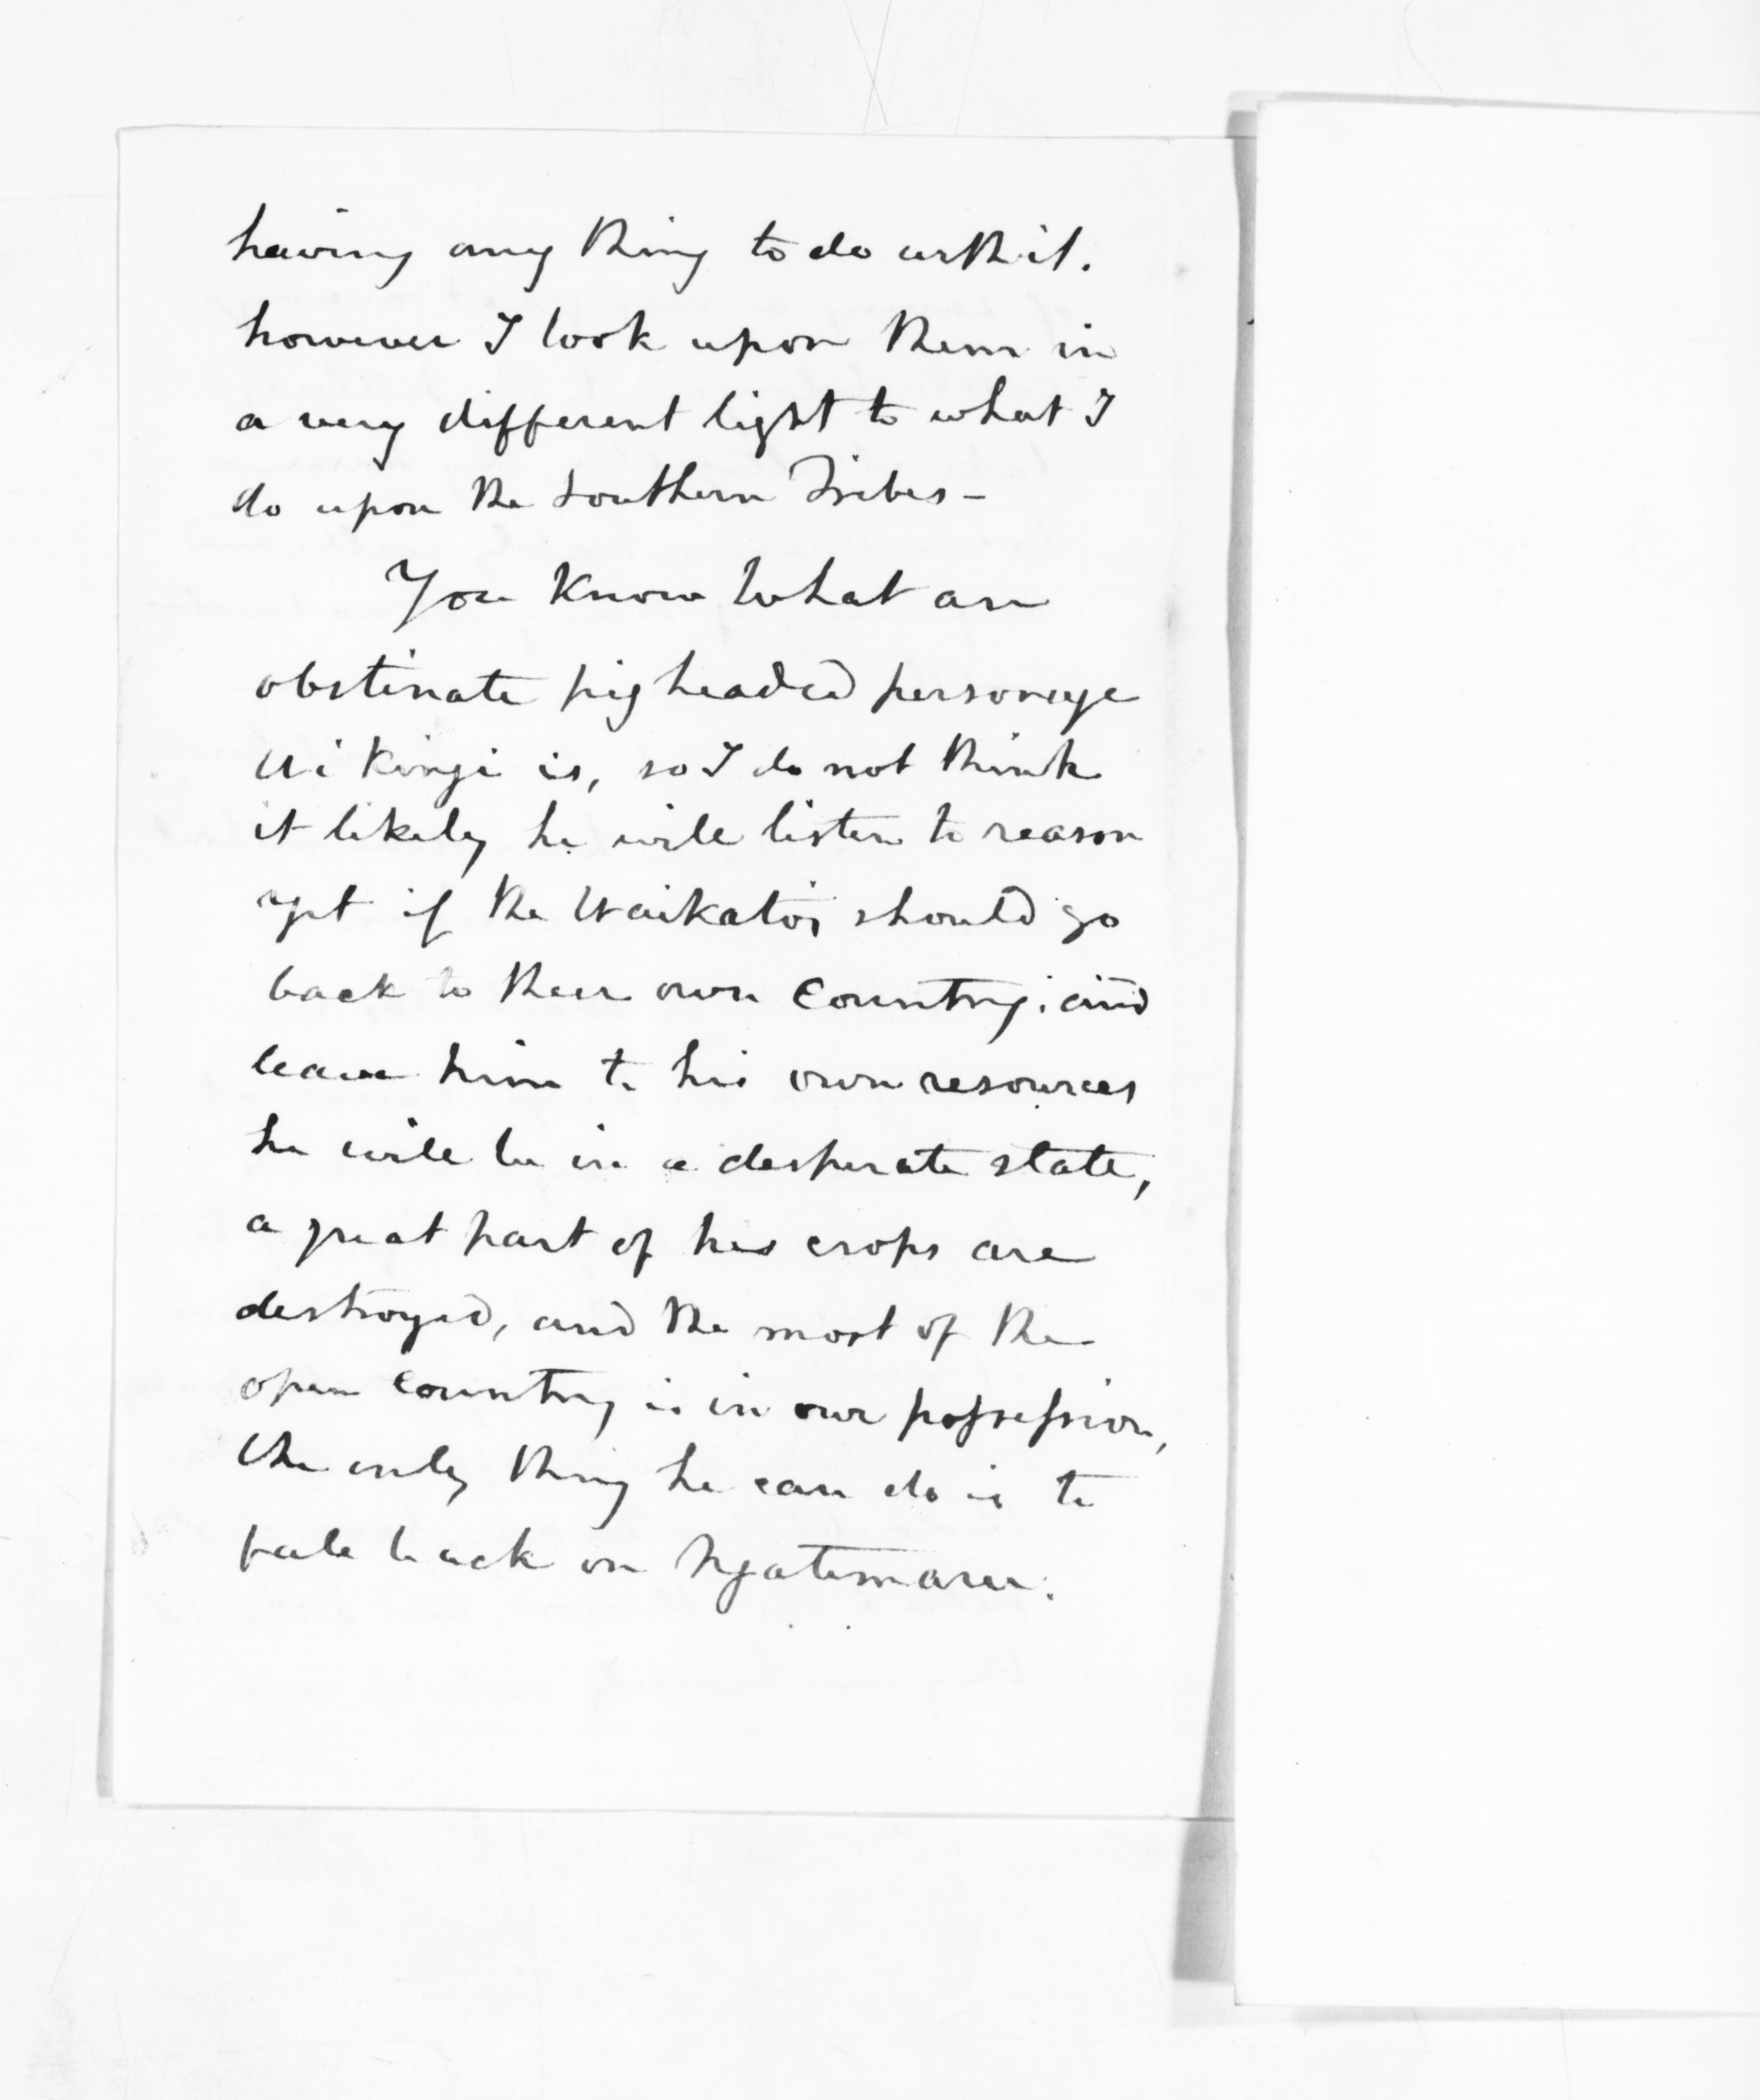 having any thing to do with it.
however I look upon them in
a very different light to what I
do upon the Southern Tribes -
You know what an
obstinate pig headed personage
Wi Kingi is, so I do not think
it likely he will listen to reason
yet if the Waikatos should go
back to their own Country; and
leave him to his own resources
he will be in a desperate state,
a great part of his crops are
destroyed, and the most of the
open country is in our possession,
the only thing he can do is to
fall back on Ngatimaru.